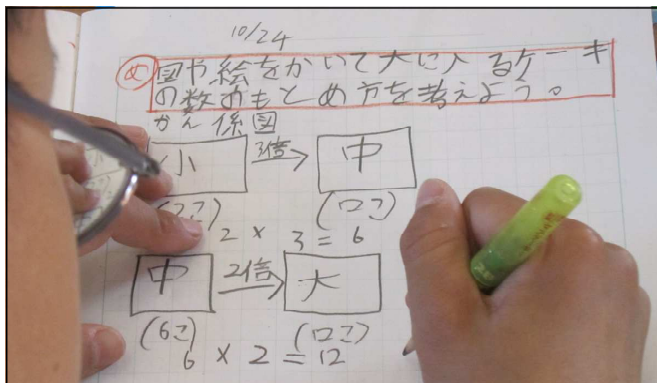 10/24
め 図や絵をかいて大に入るケーキ
の数のもとめ方を考えよう。
かん係図
小 3倍 中
(2こ) (□こ)
2 × 3 = 6
中 2倍 大
(6こ) (□こ)
6 × 2 = 12